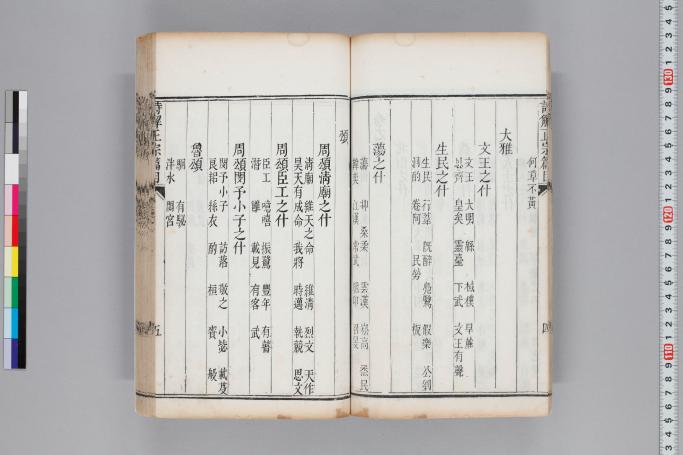 詩解正宗篇目
何草不黃
大雅
文王之什
文王 大明 緜 棫樸 旱麓
思齊 皇矣 靈臺 下武 文王有聲
生民之什
生民 行葦 既醉 鳧鷖 假樂 公劉
泂酌 卷阿 民勞 板
蕩之什
蕩 抑 桑柔 雲漢 崧高 烝民
韓奕 江漢 常武 瞻卬 召旻
四
頌
周頌清廟之什
清廟 維天之命 維清 烈文 天作
昊天有成命 我將 時邁 執競 思文
周頌臣工之什
臣工 噫嘻 振鷺 豐年 有瞽
潛 雝 載見 有客 武
周頌閔予小子之什
閔予小子 訪落 敬之 小毖 載芟
良耜 絲衣 酌 桓 賚 般
魯頌
駉 有駜
泮水 閟宮
詩解正宗篇目
五
130
120
110